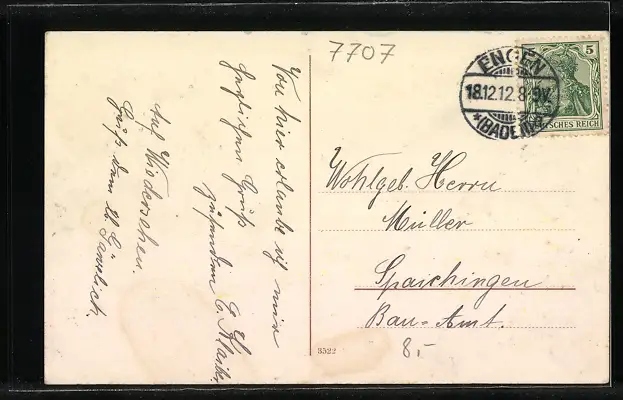 7707
ENGEN
18.12.12.8-9V.
*(BADEN)*
5
DEUTSCHES REICH
Wohlgeb. Herrn
Müller
Spaichingen
Bau-Amt.
8.-
3522
Von hier erlaube ich mir
herzlichen Gruß
zusenden E.
Auf Wiedersehen.
Gruß vom